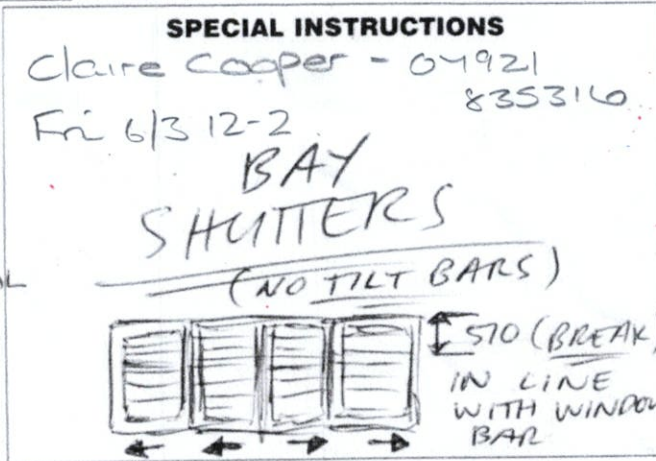 SPECIAL INSTRUCTIONS
Claire Cooper - 04921
835316
Fri 6/3 12-2
BAY
SHUTTERS
(NO TILT BARS)
570 (BREAK)
IN LINE
WITH WINDOW
BAR